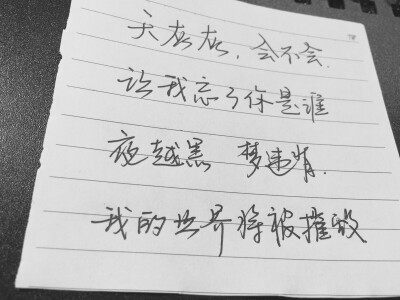 天灰灰,会不会.
让我忘了你是谁
夜越黑 梦违背.
我的世界将被摧毁